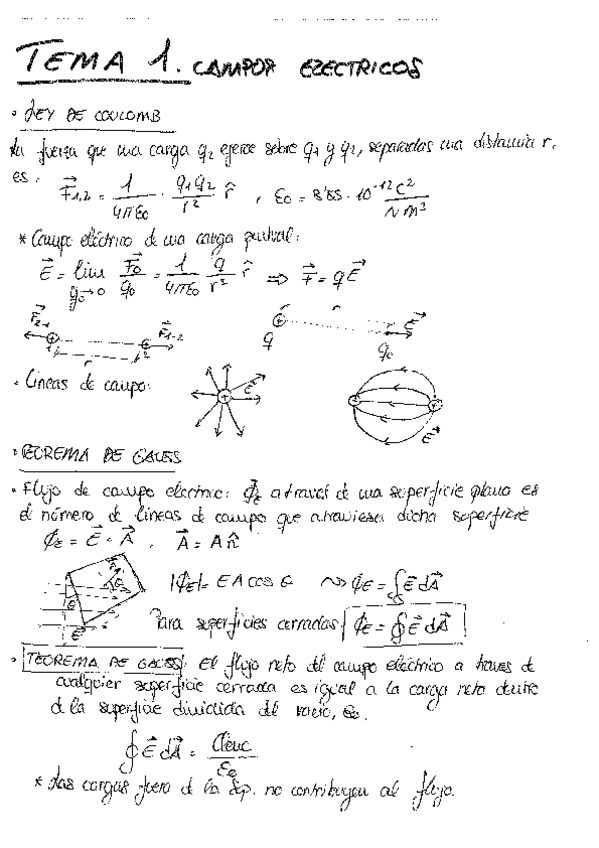 TEMA 1. CAMPOS ELECTRICOS
• LEY DE COULOMB
La fuerza que una carga q₂ ejerce sobre q₁ y q₂, separadas una distancia r,
es: F⃗₁,₂ = 1/4πε₀ · q₁q₂/r² r̂ , ε₀ = 8'85 · 10⁻¹² C²/Nm³
* Campo eléctrico de una carga puntual:
E⃗ = lim q₀→0 F⃗₀/q₀ = 1/4πε₀ q/r² r̂ ⇒ F⃗ = qE⃗
F⃗₂₋₁ + 1 r + 2 F⃗₁₋₂
+ q r q₀ E⃗
• Lineas de campo: + E⃗ + E⃗
• TEOREMA DE GAUSS
• Flujo de campo electrico: Φ_E a través de una superficie plana es
el número de lineas de campo que atraviesa dicha superficie
Φ_E = E⃗ · A⃗ , A⃗ = A n̂
|Φ_E| = E A cos θ ⇝ Φ_E = ∫ E⃗ dA⃗
E⃗ Para superficies cerradas Φ_E = ∮ E⃗ dA⃗
• TEOREMA DE GAUSS: el flujo neto del campo eléctrico a traves de
cualquier superficie cerrada es igual a la carga neta dentro
d la superficie dividida del vacio, ε₀.
∮ E⃗ dA⃗ = Qenc/ε₀
* Las cargas fuera d la sup. no contribuyen al flujo.